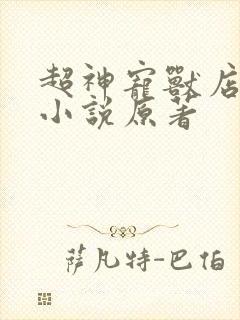 超神寵獸店
小說原著
薩凡特-巴伯